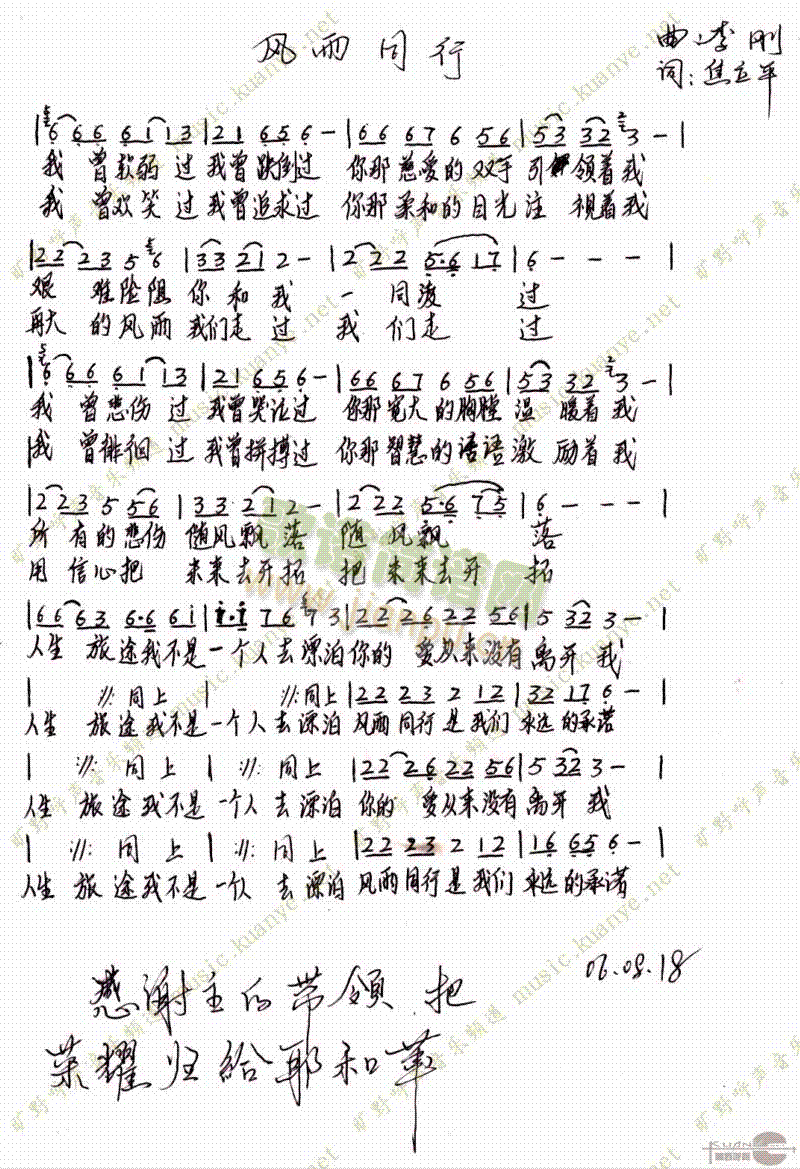 风雨同行
曲:李刚
词:焦立平
|6 66 61 13|21 656 -|66 67 6 56|53 32 3 -|
我 曾软弱 过我曾跌倒过 你那慈爱的双手 引领着我
我 曾欢笑 过我曾追求过 你那柔和的目光注 视着我
|22 23 5 6|33 21 2 -|2 22 5·6 17|6 - - -|
艰 难险阻 你 和 我 一 同凌 过
再大 的风雨 我们走 过 我 们走 过
|6 66 61 13|21 656 -|66 67 6 56|53 32 3 -|
我 曾悲伤 过 我曾哭泣过 你那宽大的胸膛 温 暖着我
我 曾徘徊 过我曾拼搏过 你那智慧的话语激 励着我
|223 5 56|33 21 2 -|2 22 5·6 75|6 - - -|
所 有的悲伤 随风飘 落 随 风飘 落
用 信心把 未来去开拓 把 未来去开 拓
|66 63 6·6 6i|i·i 76 7 3|22 26 22 56|5 32 3 -|
人生 旅途我不是一个人去漂泊你的 爱从来没有离开 我
| :/: 同上 | :/: 同上 |22 23 2 12|32 17 6 -|
人生 旅途我不是一个人去漂泊 风雨同行是我们 永远的承诺
| :/: 同上 | :/: 同上 |22 26 22 56|5 32 3 -|
人生 旅途我不是一个人去漂泊 你的 爱从来没有离开 我
| :/: 同上 | :/: 同上 |22 23 2 12|16 65 6 -|
人生 旅 途我不是一个人 去漂泊 风雨同行是我们 永远的承诺
06.08.18
感谢主的带领 把
荣耀归给耶和华
歌谱简谱网
www.jianpu.cn
旷野呼声音乐频道 music.kuanye.net